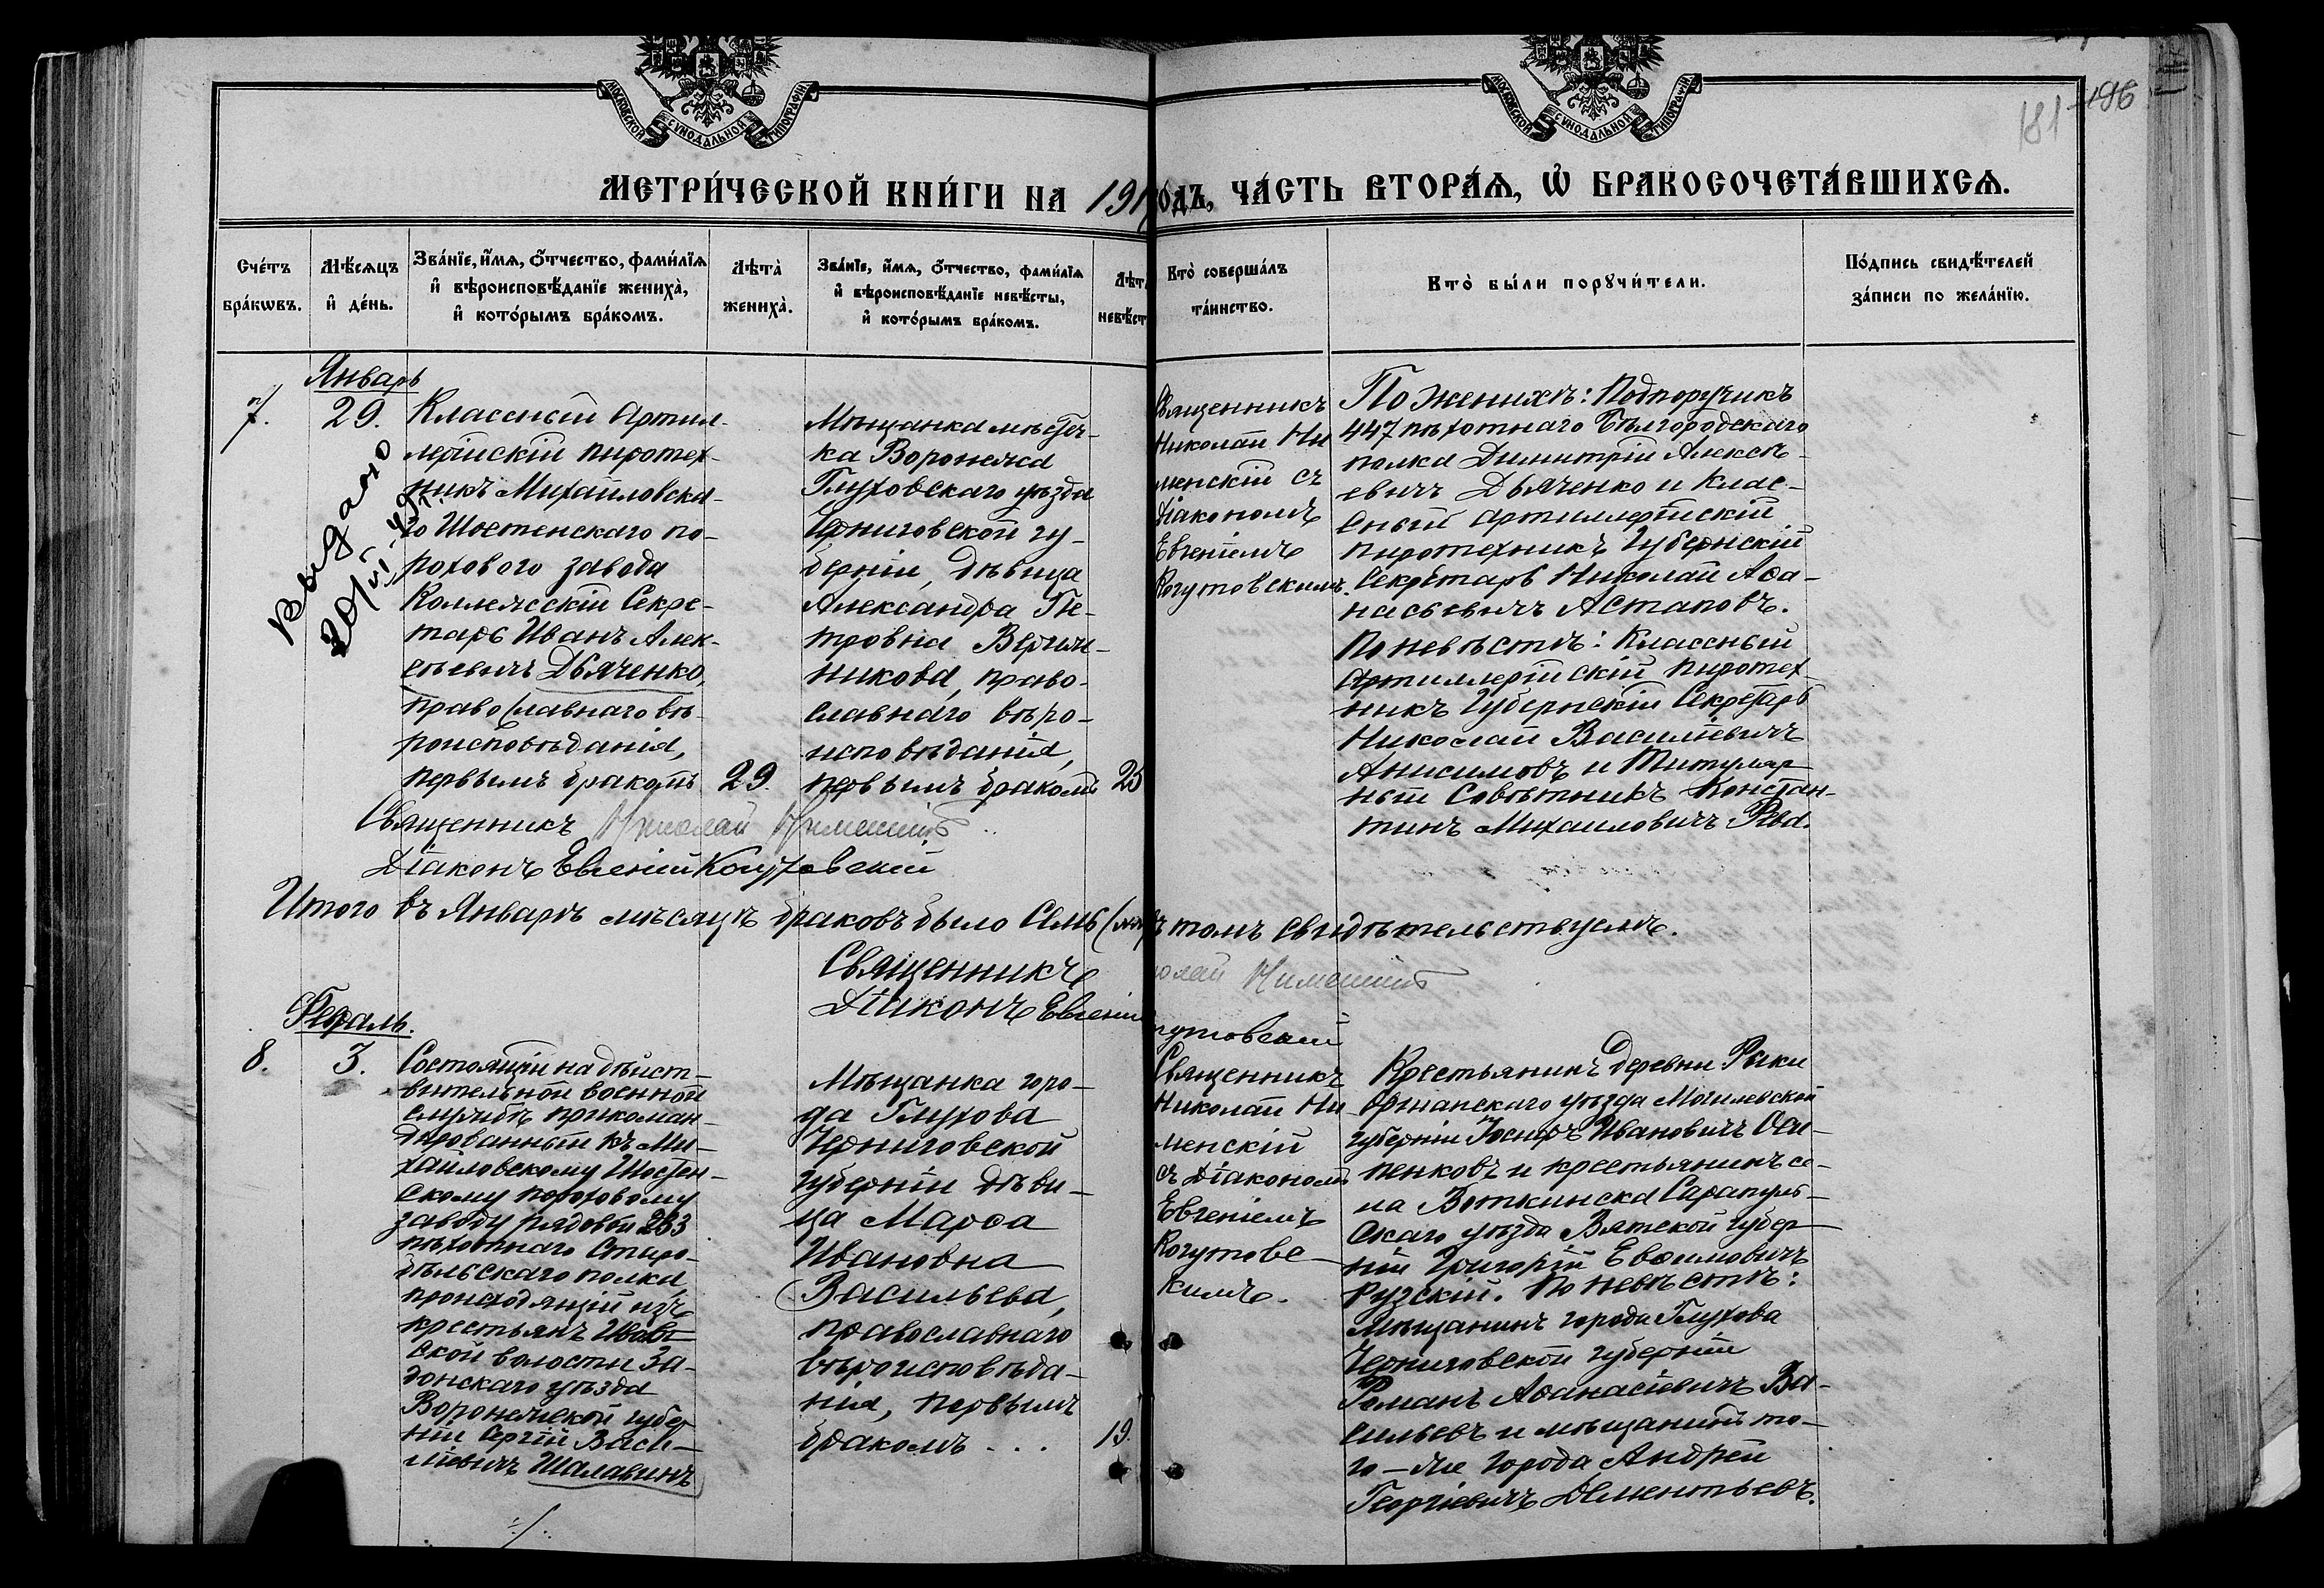 181 196
МОСКОВСКОЙ СѴНОДАЛЬНОЙ ТИПОГРАФІИ
МОСКОВСКОЙ СѴНОДАЛЬНОЙ ТИПОГРАФІИ
МЕТРИ́ЧЕСКОЙ КНИ́ГИ НА 191
ОДЪ, ЧА́СТЬ ВТОРА́Ѧ, Ѡ҆ БРАКОСОЧЕТА́ВШИХСѦ.
Сче́тъ
бра́кѡвъ.
Мѣ́сѧцъ
и҆ де́нь.
Зва́нїе, и҆́мѧ, ѻ҆́тчество, фами́лїѧ
и҆ вѣроисповѣ́данїе жениха̀,
и҆ кото́рымъ бра́комъ.
Лѣта̀
жениха̀.
Зва́нїе, и҆́мѧ, ѻ҆́тчество, фами́лїѧ
и҆ вѣроисповѣ́данїе невѣ́сты,
и҆ кото́рымъ бра́комъ.
Лѣт
невѣст
Кто̀ соверша́лъ
та́инство.
Кто̀ бы́ли порꙋчи́тели.
По́дпись свидѣ́телей
за́писи по жела́нїю.
Январь
7.
29.
Выдано
Классный Артил-
лерійскій пиротех-
никъ Михайловска-
го Шостенскаго по-
рохового завода
Коллежскій Секре-
тарь Иванъ Алек-
сѣевичъ Дьяченко,
православнаго вѣ-
роисповѣданія,
первымъ бракомъ
29.
Мѣщанка мѣстеч-
ка Воронежа
Глуховскаго уѣзда
Черниговской гу-
берніи, дѣвица
Александра Пе-
тровна
никова, право-
славнаго вѣро-
исповѣданія,
первымъ бракомъ
25
Священникъ
Николай Ни
менскій съ
Діакономъ
Евгеніемъ
Когутовскимъ.
По женихѣ: Подпоручикъ
447 пѣхотнаго Бѣлгородскаго
полка Димитрій Алексѣ-
евичъ Дьяченко и Клас-
сный артиллерійскій
пиротехникъ Губернскій
Секретарь Николай Аѳа-
насьевичъ Астаповъ.
По невѣстѣ: Классный
Артиллерійскій пиротех-
никъ Губернскій Секретарь
Николай Василіевичъ
Анисимовъ и Титуляр-
ный Совѣтникъ Констан-
тинъ Михаиловичъ Рева.
Священникъ Николай Нименскій
Діаконъ Евгеній Когутовскій
Итого въ Январѣ мѣсяцѣ браковъ было Семь
ъ томъ свидѣтельствуемъ.
Священникъ
олай Нименскій
Діаконъ Евгеній
гутовскій
Февраль.
8.
3.
Состоящій на дѣйст-
вительной военной
службѣ прикоман-
дированный къ Ми-
хайловскому Шостен-
скому пороховому
заводу рядовой 253
пѣхотнаго Старо-
бѣльскаго полка,
происходящій изъ
крестьянъ
ской волости За-
донскаго уѣзда
Воронежской губер-
ніи Сергій Васи-
ліевичъ Шалавинъ
Мѣщанка горо-
да Глухова
Черниговской
губерніи дѣви-
ца Марѳа
Ивановна
Васильева,
православнаго
вѣроисповѣда-
нія, первымъ
бракомъ . . .
19.
Священникъ
Николай Ни
менскій
съ Діакономъ
Евгеніемъ
Когутовс-
кимъ.
Крестьянинъ деревни Рыки
Оршанскаго уѣзда Могилевской
губерніи Іосифъ Ивановичъ Оси-
пенковъ и крестьянинъ се-
ла Воткинска Сарапуль-
скаго уѣзда Вятской губер-
ніи Григорій Евѳимовичъ
Рузскій. По невѣстѣ:
Мѣщанинъ города Глухова
Черниговской губерніи
Романъ Аѳанасіевичъ Ва-
сильевъ и мѣщанинъ то-
го-же города Андрей
Георгіевичъ Дементьевъ.